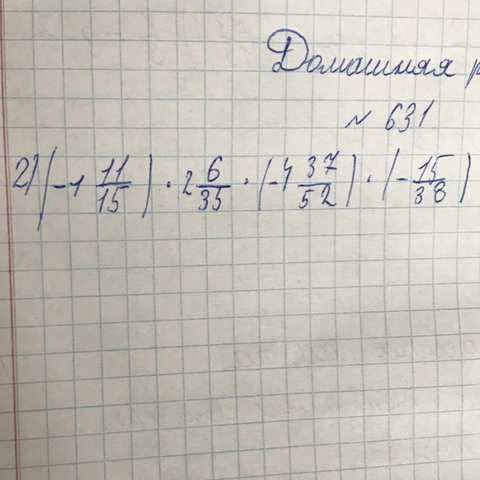 Домашняя р
№ 631
2) (-1 11/15) · 2 6/35 · (-1 37/52) · (-15/38)